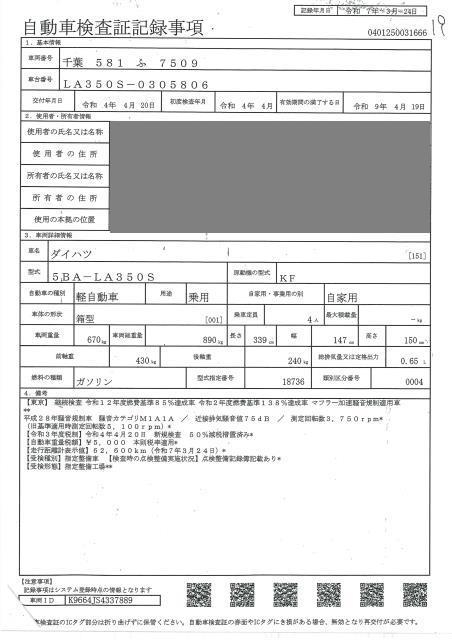 記録年月日 令和 7年 3月24日
自動車検査証記録事項
0401250031666
19
1．基本情報
車両番号 千葉 581 ふ 7509
車台番号 LA350S－0305806
交付年月日 令和 4年 4月20日 初度検査年月 令和 4年 4月 有効期間の満了する日 令和 9年 4月 19日
2．使用者・所有者情報
使用者の氏名又は名称
使用者の住所
所有者の氏名又は名称
所有者の住所
使用の本拠の位置
3．車両詳細情報
車名 ダイハツ [151]
型式 5BA－LA350S 原動機の型式 KF
自動車の種別 軽自動車 用途 乗用 自家用・事業用の別 自家用
車体の形状 箱型 [001] 乗車定員 4人 最大積載量 －kg
車両重量 670kg 車両総重量 890kg 長さ 339cm 幅 147cm 高さ 150cm
前軸重 430kg 後軸重 240kg 総排気量又は定格出力 0.65 L
燃料の種類 ガソリン 型式指定番号 18736 類別区分番号 0004
4．備考
【東京】 継続検査 令和12年度燃費基準85％達成車 令和2年度燃費基準138％達成車 マフラー加速騒音規制適用車
**
平成28年騒音規制車 騒音カテゴリM1A1A ／ 近接排気騒音値75dB ／ 測定回転数3，750rpm*
（旧基準適用時測定回転数5，100rpm）*
【令和3年度税制】令和4年4月20日 新規検査 50％減税措置済み*
【自動車重量税額】¥5，000 本則税率適用*
【走行距離計表示値】62，600km（令和7年3月24日）*
【受検種別】指定整備車 【検査時の点検整備実施状況】点検整備記録簿記載あり*
【受検形態】指定整備工場**
【注意事項】
記録事項はシステム登録時点の情報となります
車両ID K9664JS4337889
車検査証のICタグ部分は折り曲げずに保管ください。自動車検査証の券面やICタグにき損がある場合、無効となり再交付が必要です。